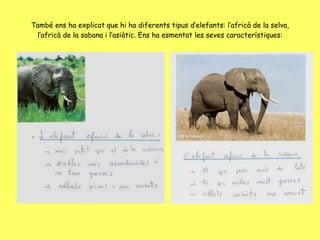 També ens ha explicat que hi ha diferents tipus d'elefants: l'africà de la selva,
l'africà de la sabana i l'asiàtic. Ens ha esmentat les seves característiques:
L'elefant africà de la selva:
→ més petit que el de la sabana
→ orelles més arrodonides i
no tan grosses
→ ullals prims i poc corbats
L'elefant africà de la sabana
→ És que pesa més de tots
→ té les orelles molt grosses
→ ullals corbats cap amunt